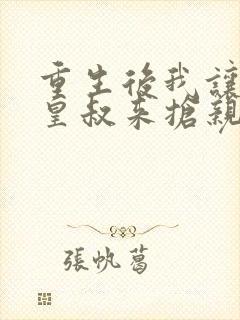 重生後我讓
皇叔来搶親
張帆葛